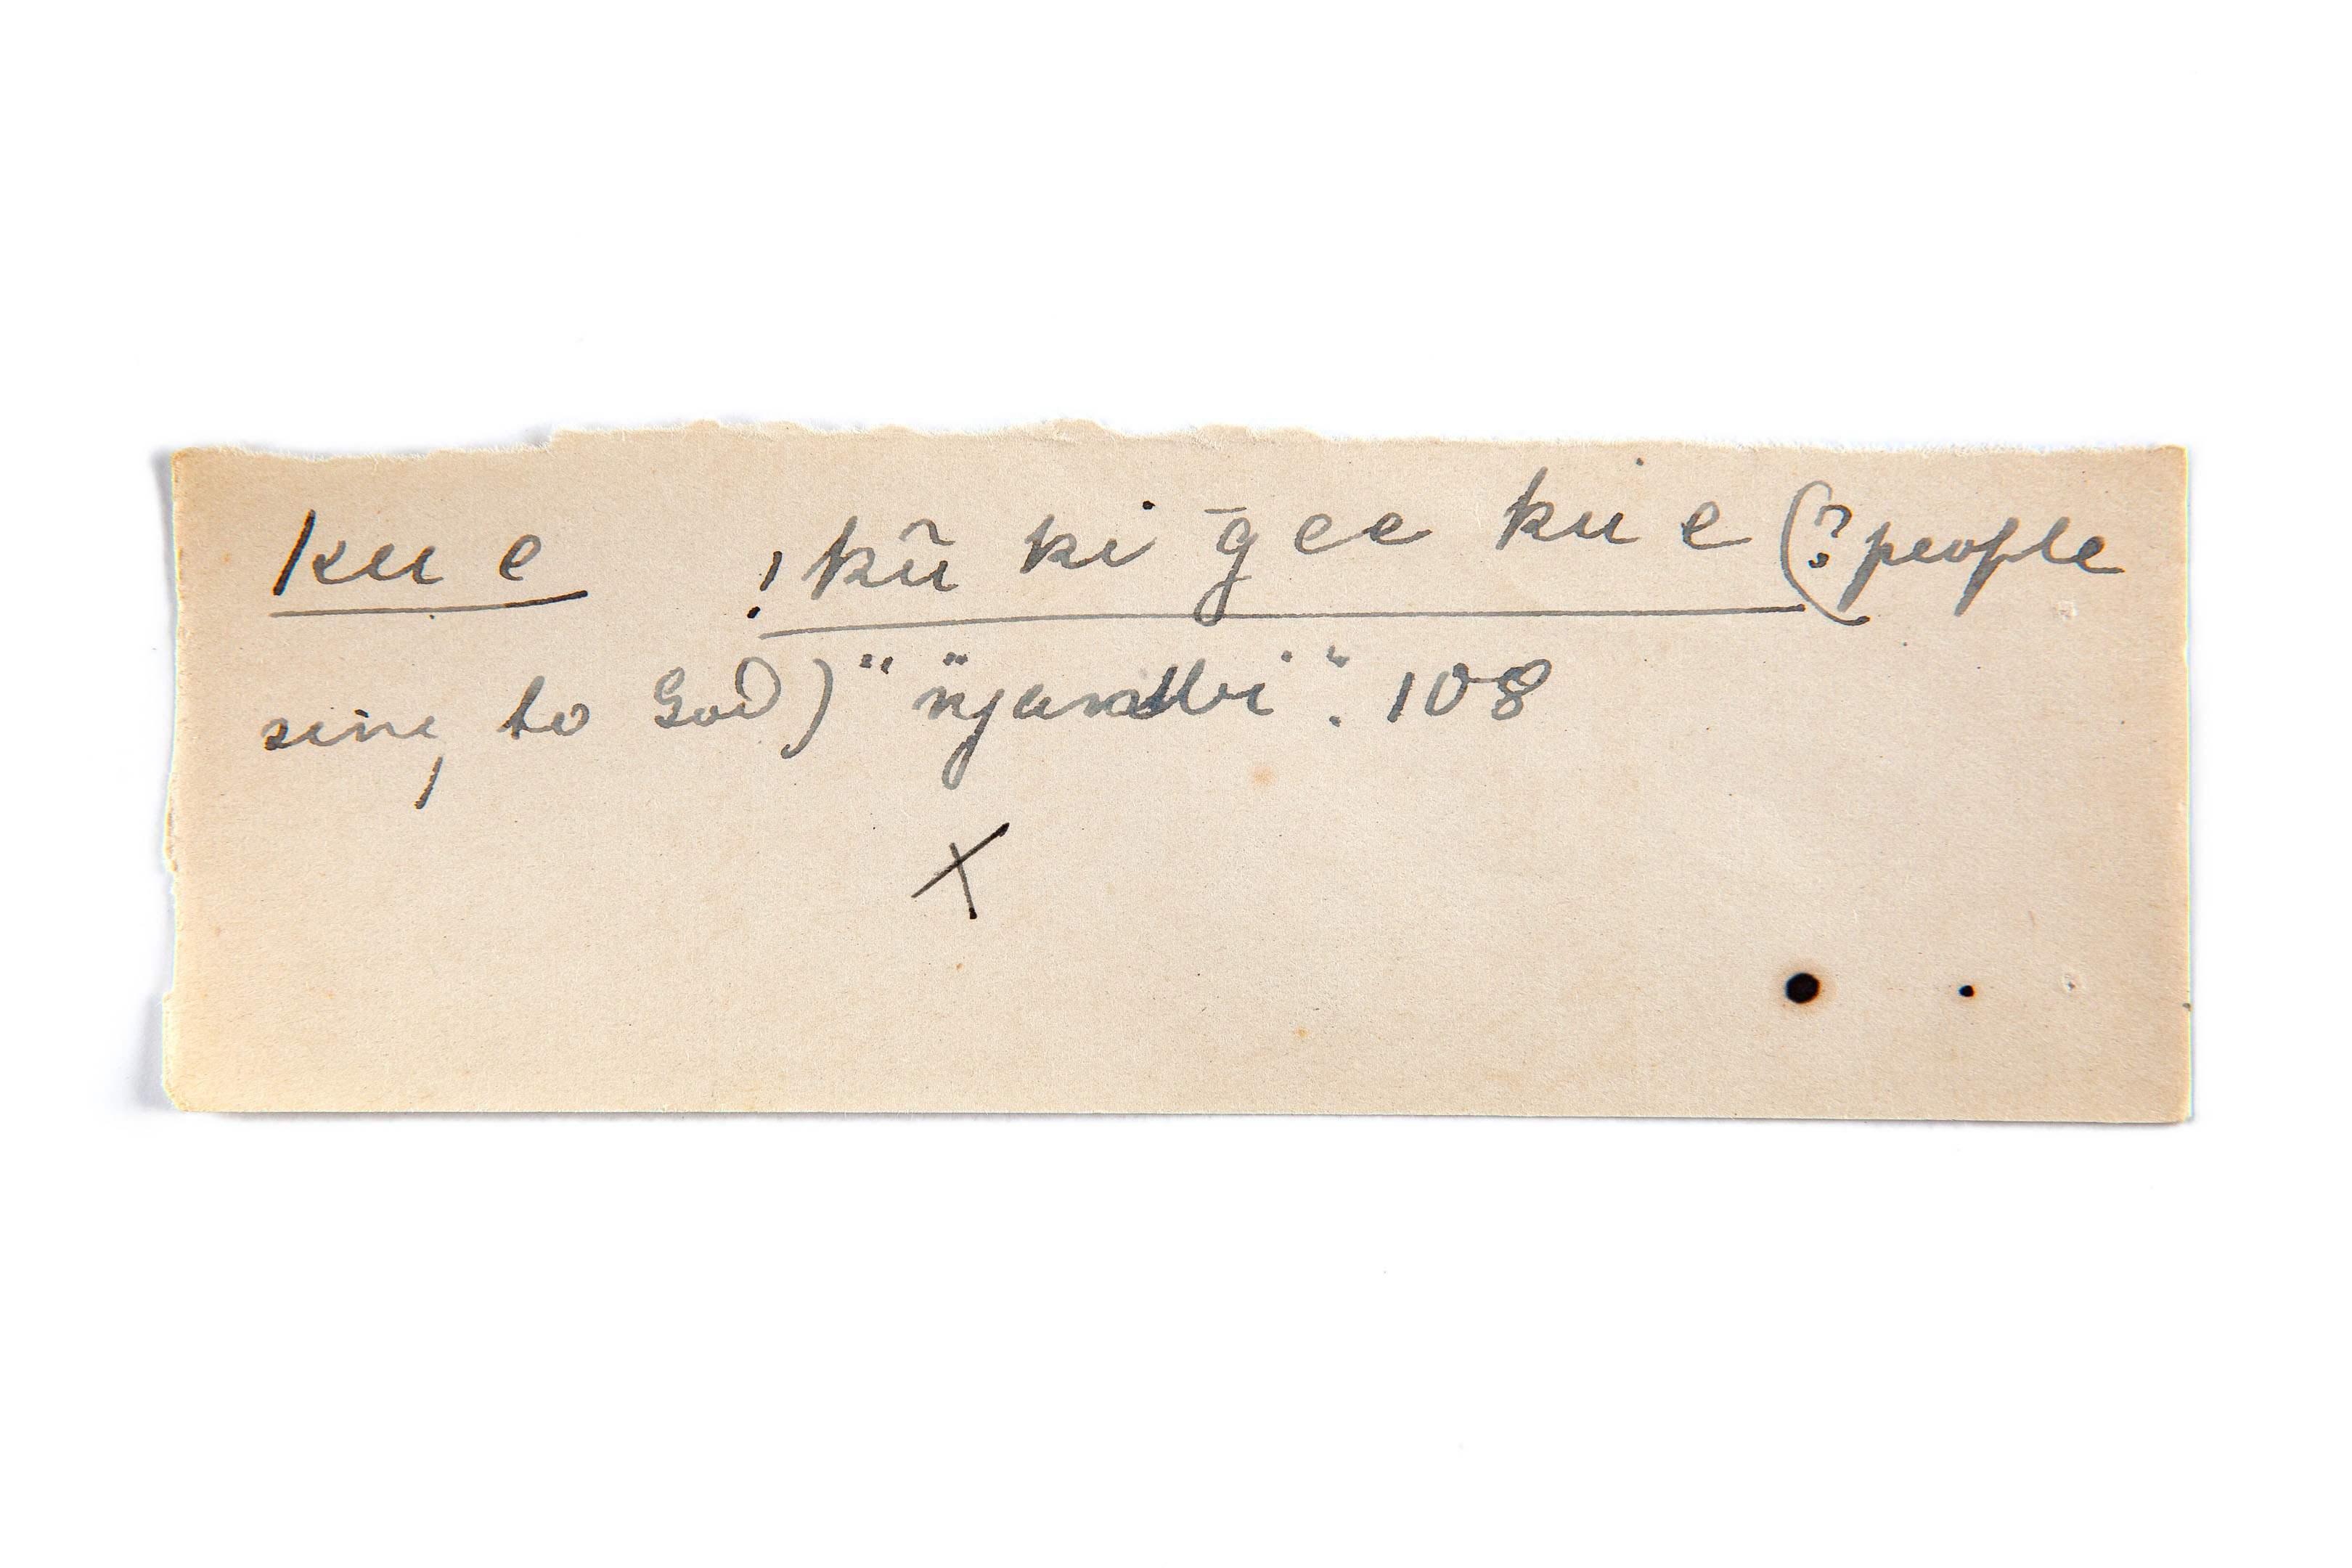 ku e !kũ ki ḡee ku e (? people
sing to God) " njambi ". 108
X